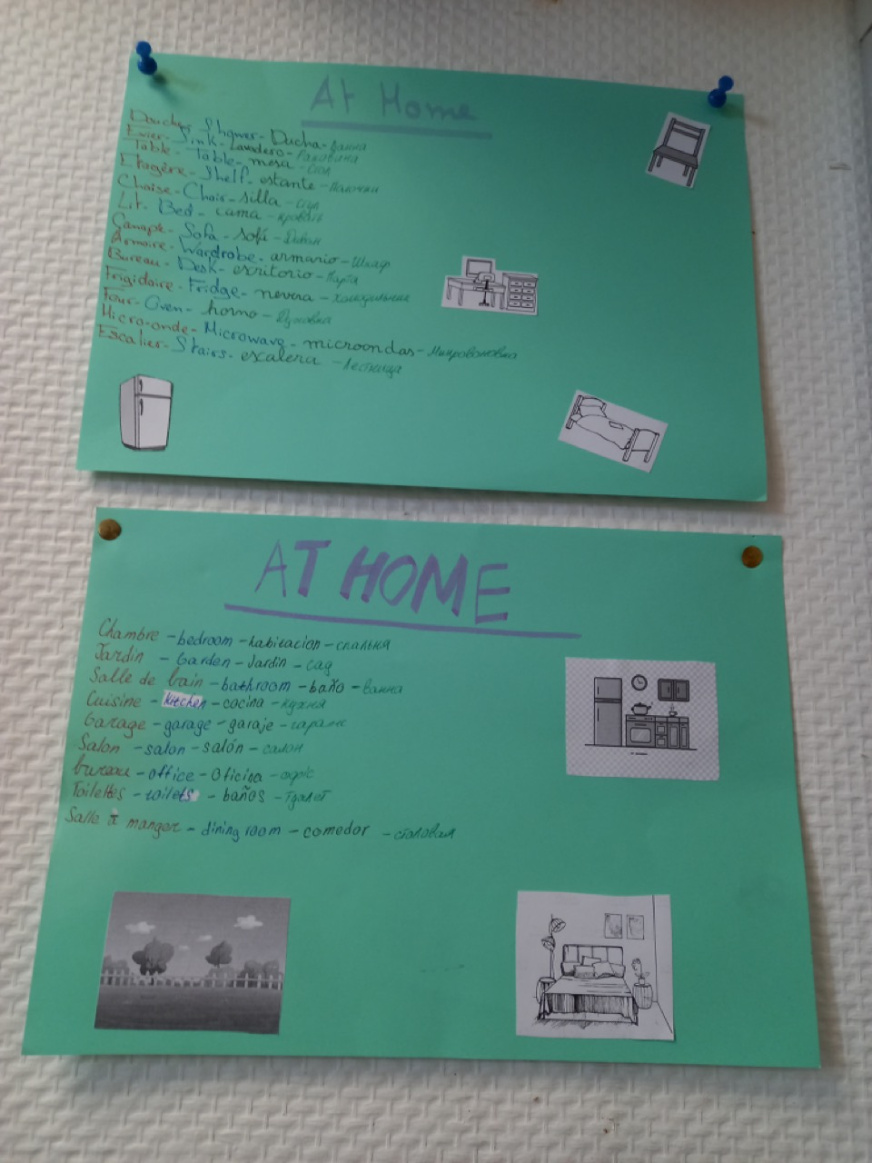 At Home
Douche - Shower - Ducha - Ванна
Evier - Sink - Lavadero - Раковина
Table - Table - mesa - Стол
Etagère - Shelf - estante - Полочки
Chaise - Chair - silla - Стул
Lit - Bed - cama - кровать
Canapé - Sofa - sofá - Диван
Armoire - Wardrobe - armario - Шкаф
Bureau - Desk - escritorio - Парта
Frigidaire - Fridge - nevera - Холодильник
Four - Oven - horno - Духовка
Micro-onde - Microwave - microondas - Микроволновка
Escalier - Stairs - escalera - Лестница
AT HOME
Chambre - bedroom - habitacion - спальня
Jardin - Garden - Jardin - сад
Salle de bain - bathroom - baño - ванна
Cuisine - kitchen - cocina - кухня
Garage - garage - garaje - гараж
Salon - salon - salón - салон
bureau - office - Oficina - офис
Toilettes - toilets - baños - туалет
Salle à manger - dining room - comedor - столовая